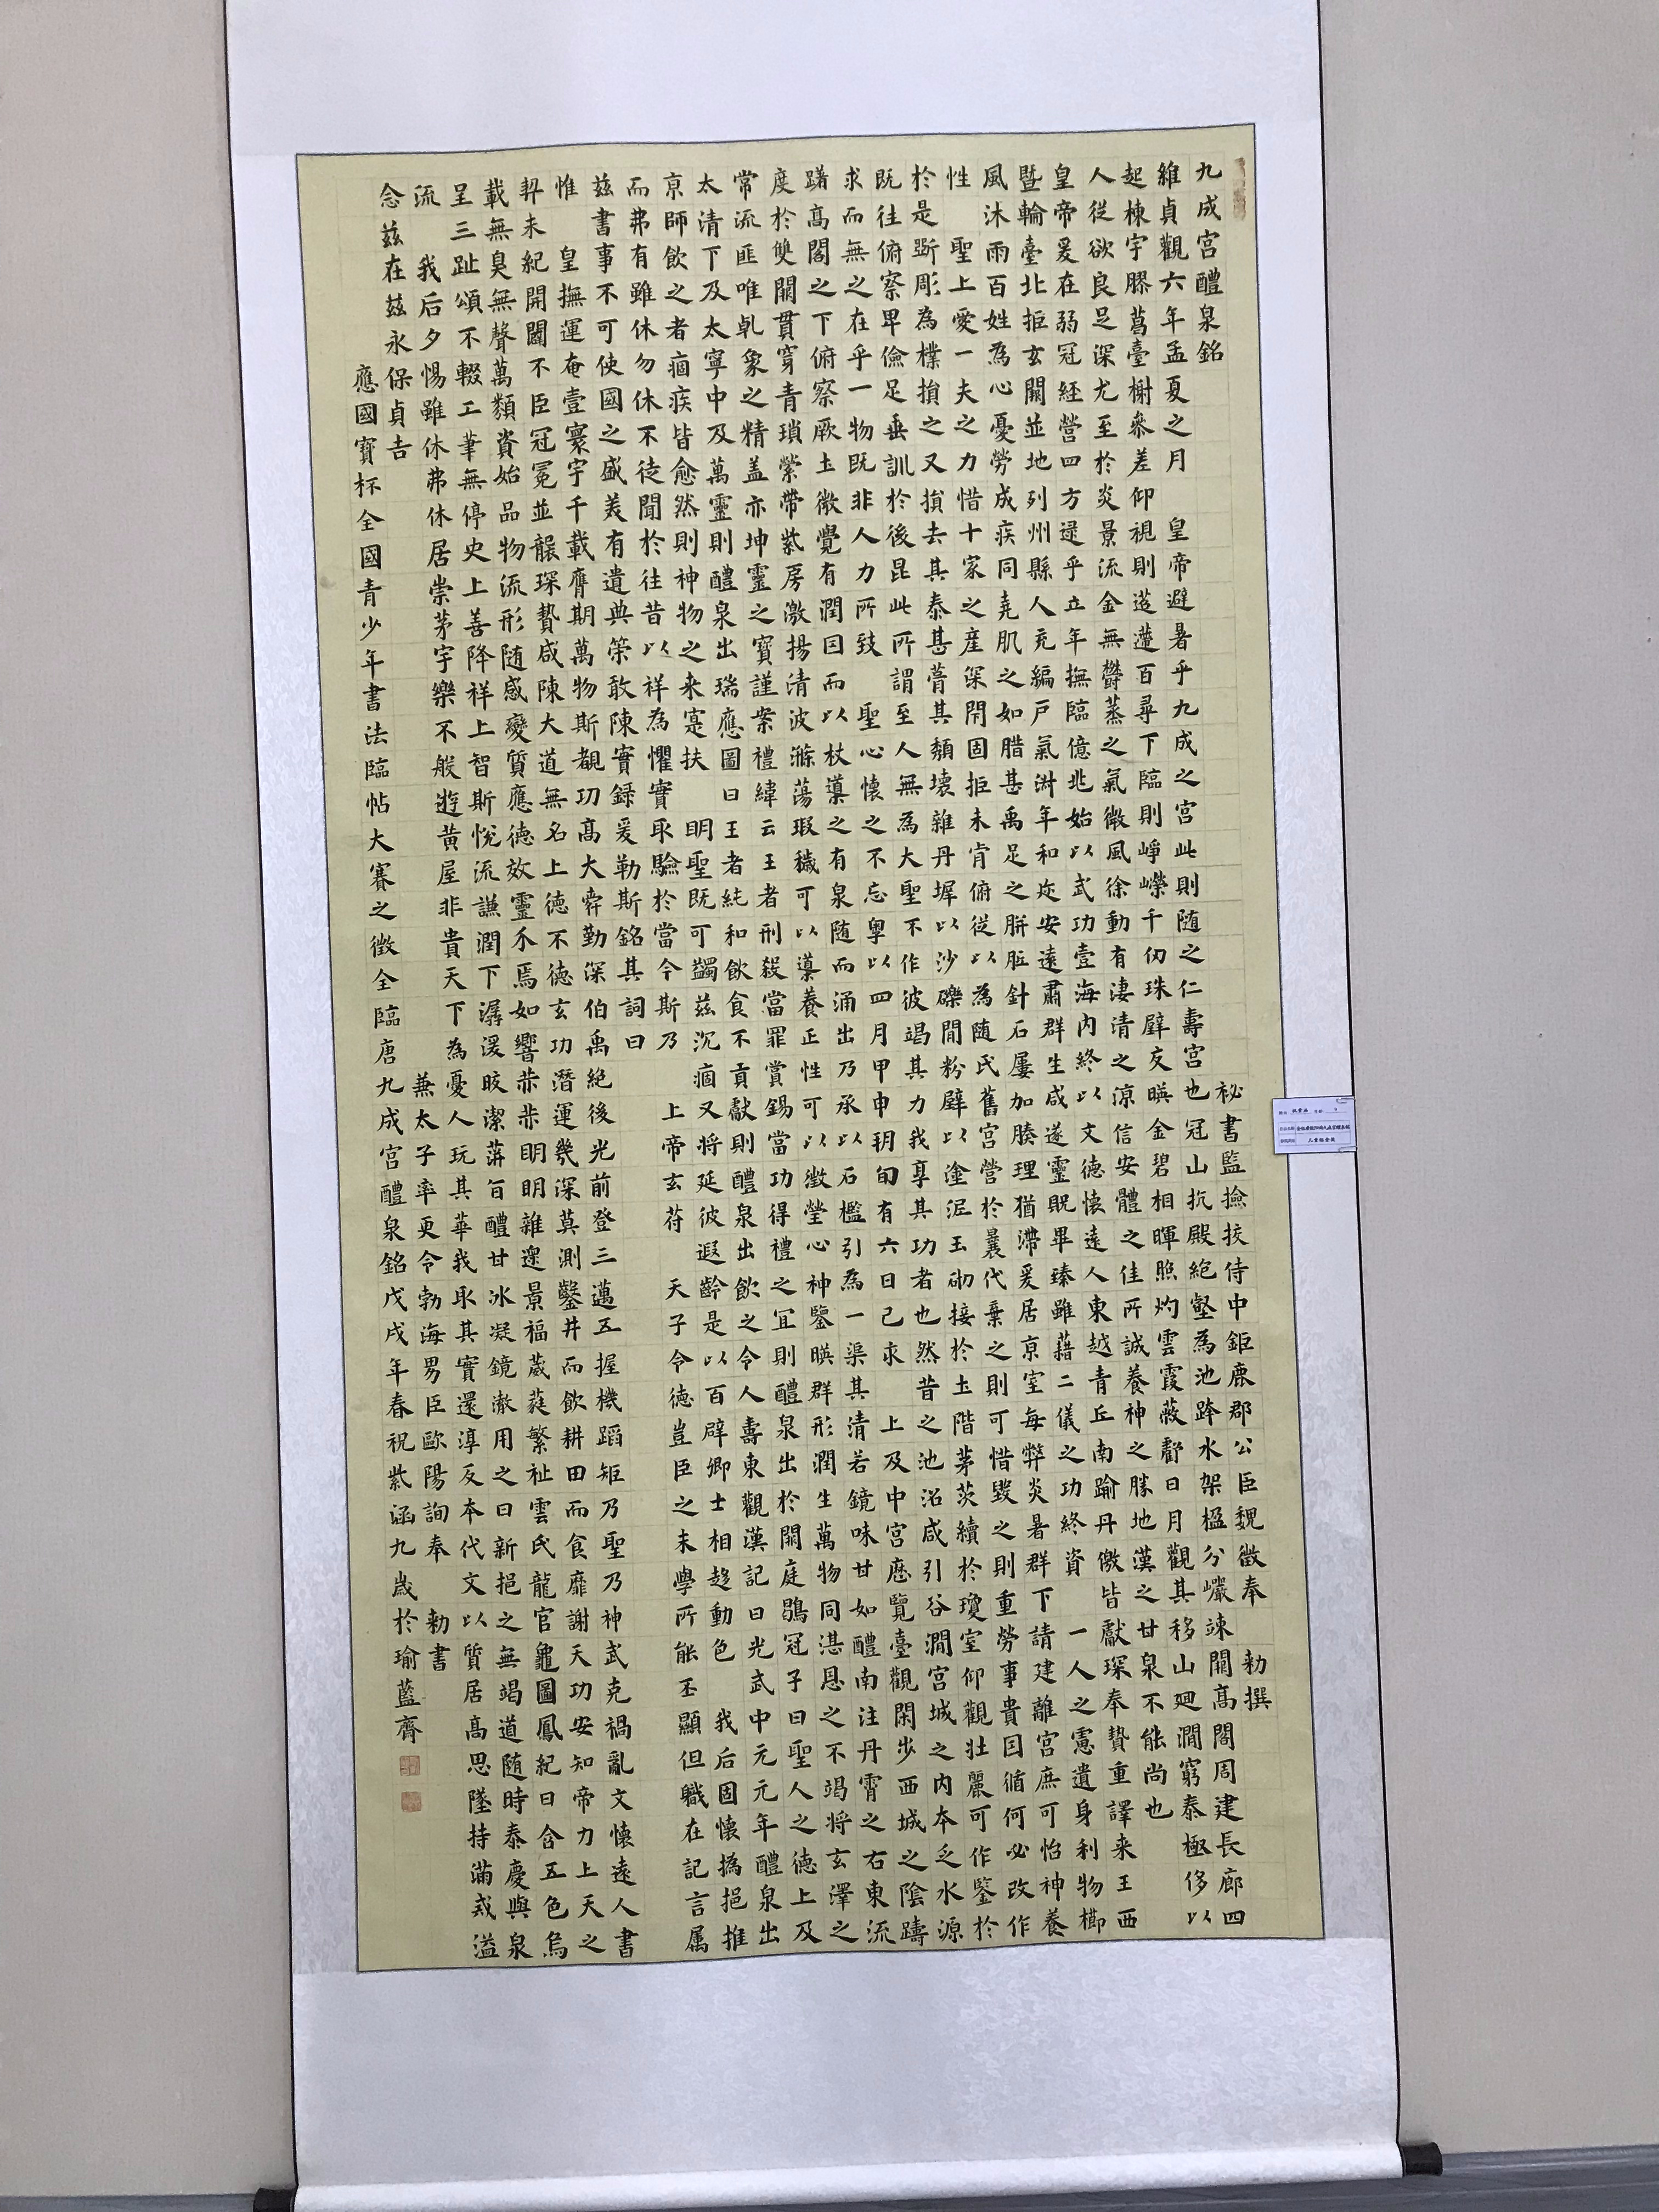 九成宮醴泉銘 秘書監撿挍侍中鉅鹿郡公臣魏徵奉 勑撰
維貞觀六年孟夏之月 皇帝避暑乎九成之宮此則随之仁壽宮也冠山抗殿絶壑為池跨水架楹分巖竦闕高閣周建長廊四
起棟宇膠葛臺榭參差仰視則迢遰百尋下臨則崢嶸千仞珠壁交暎金碧相暉照灼雲霞蔽虧日月觀其移山廻澗窮泰極侈以
人從欲良足深尤至於炎景流金無欝蒸之氣微風徐動有淒清之凉信安體之佳所誠養神之勝地漢之甘泉不能尚也
皇帝爰在弱冠經營四方逮乎立年撫臨億兆始以武功壹海內終以文德懷遠人東越青丘南踰丹儌皆獻琛奉贄重譯来王西
暨輪臺北拒玄闕並地列州縣人充編戶氣淑年和迩安遠肅群生咸遂靈貺畢臻雖藉二儀之功終資 一人之慮遺身利物櫛
風沐雨百姓為心憂勞成疾同堯肌之如腊甚禹足之胼胝針石屢加腠理猶滯爰居京室每弊炎暑群下請建離宮庶可怡神養
性 聖上愛一夫之力惜十家之產深閇固拒未肯俯從以為随氏舊宮營於曩代棄之則可惜毀之則重勞事貴因循何必改作
於是斲彫為樸損之又損去其泰甚葺其頽壞雜丹墀以沙礫間粉壁以塗泥玉砌接於土階茅茨續於瓊室仰觀壯麗可作鑒於
既往俯察卑儉足垂訓於後昆此所謂至人無為大聖不作彼竭其力我享其功者也然昔之池沼咸引谷澗宮城之內本乏水源
求而無之在乎一物既非人力所致 聖心懷之不忘粵以四月甲申朔旬有六日己亥 上及中宮歷覽臺觀閑步西城之陰躊
躇高閣之下俯察厥土微覺有潤因而以杖導之有泉随而涌出乃承以石檻引為一渠其清若鏡味甘如醴南注丹霄之右東流
度於雙闕貫穿青瑣縈帶紫房激揚清波滌蕩瑕穢可以導養正性可以澂瑩心神鑒暎群形潤生萬物同湛恩之不竭將玄澤之
常流匪唯乾象之精盖亦坤靈之寶謹案禮緯云王者刑殺當罪賞錫當功得禮之宜則醴泉出於闕庭鶡冠子曰聖人之德上及
太清下及太寧中及萬靈則醴泉出瑞應圖曰王者純和飲食不貢獻則醴泉出飲之令人壽東觀漢記曰光武中元元年醴泉出
京師飲之者痼疾皆愈然則神物之来寔扶 明聖既可蠲茲沉痼又將延彼遐齡是以百辟卿士相趍動色 我后固懷撝挹推
而弗有雖休勿休不徒聞於往昔以祥為懼實取驗於當今斯乃 上帝玄苻 天子令德豈臣之末學所能丕顯但職在記言属
茲書事不可使國之盛美有遺典策敢陳實録爰勒斯銘其詞曰
惟 皇撫運奄壹寰宇千載膺期萬物斯覩功高大舜勤深伯禹絶後光前登三邁五握機蹈矩乃聖乃神武克禍亂文懷遠人書
契未紀開闢不臣冠冕並襲琛贄咸陳大道無名上德不德玄功潛運幾深莫測鑿井而飲耕田而食靡謝天功安知帝力上天之
載無臭無聲萬類資始品物流形随感變質應德效靈介焉如響赫赫明明雜遝景福葳蕤繁祉雲氏龍官龜圖鳳紀日含五色烏
呈三趾頌不輟工筆無停史上善降祥上智斯悅流謙潤下潺湲皎潔蓱旨醴甘冰凝鏡澈用之日新挹之無竭道随時泰慶與泉
流 我后夕惕雖休弗休居崇茅宇樂不般遊黃屋非貴天下為憂人玩其華我取其實還淳反本代文以質居高思墜持滿戒溢
念茲在茲永保貞吉 兼太子率更令勃海男臣歐陽詢奉 勑書
應國寳杯全國青少年書法臨帖大賽之徵全臨唐九成宮醴泉銘戊戌年春祝紫涵九歲於瑜藍齋
儿童组金奖